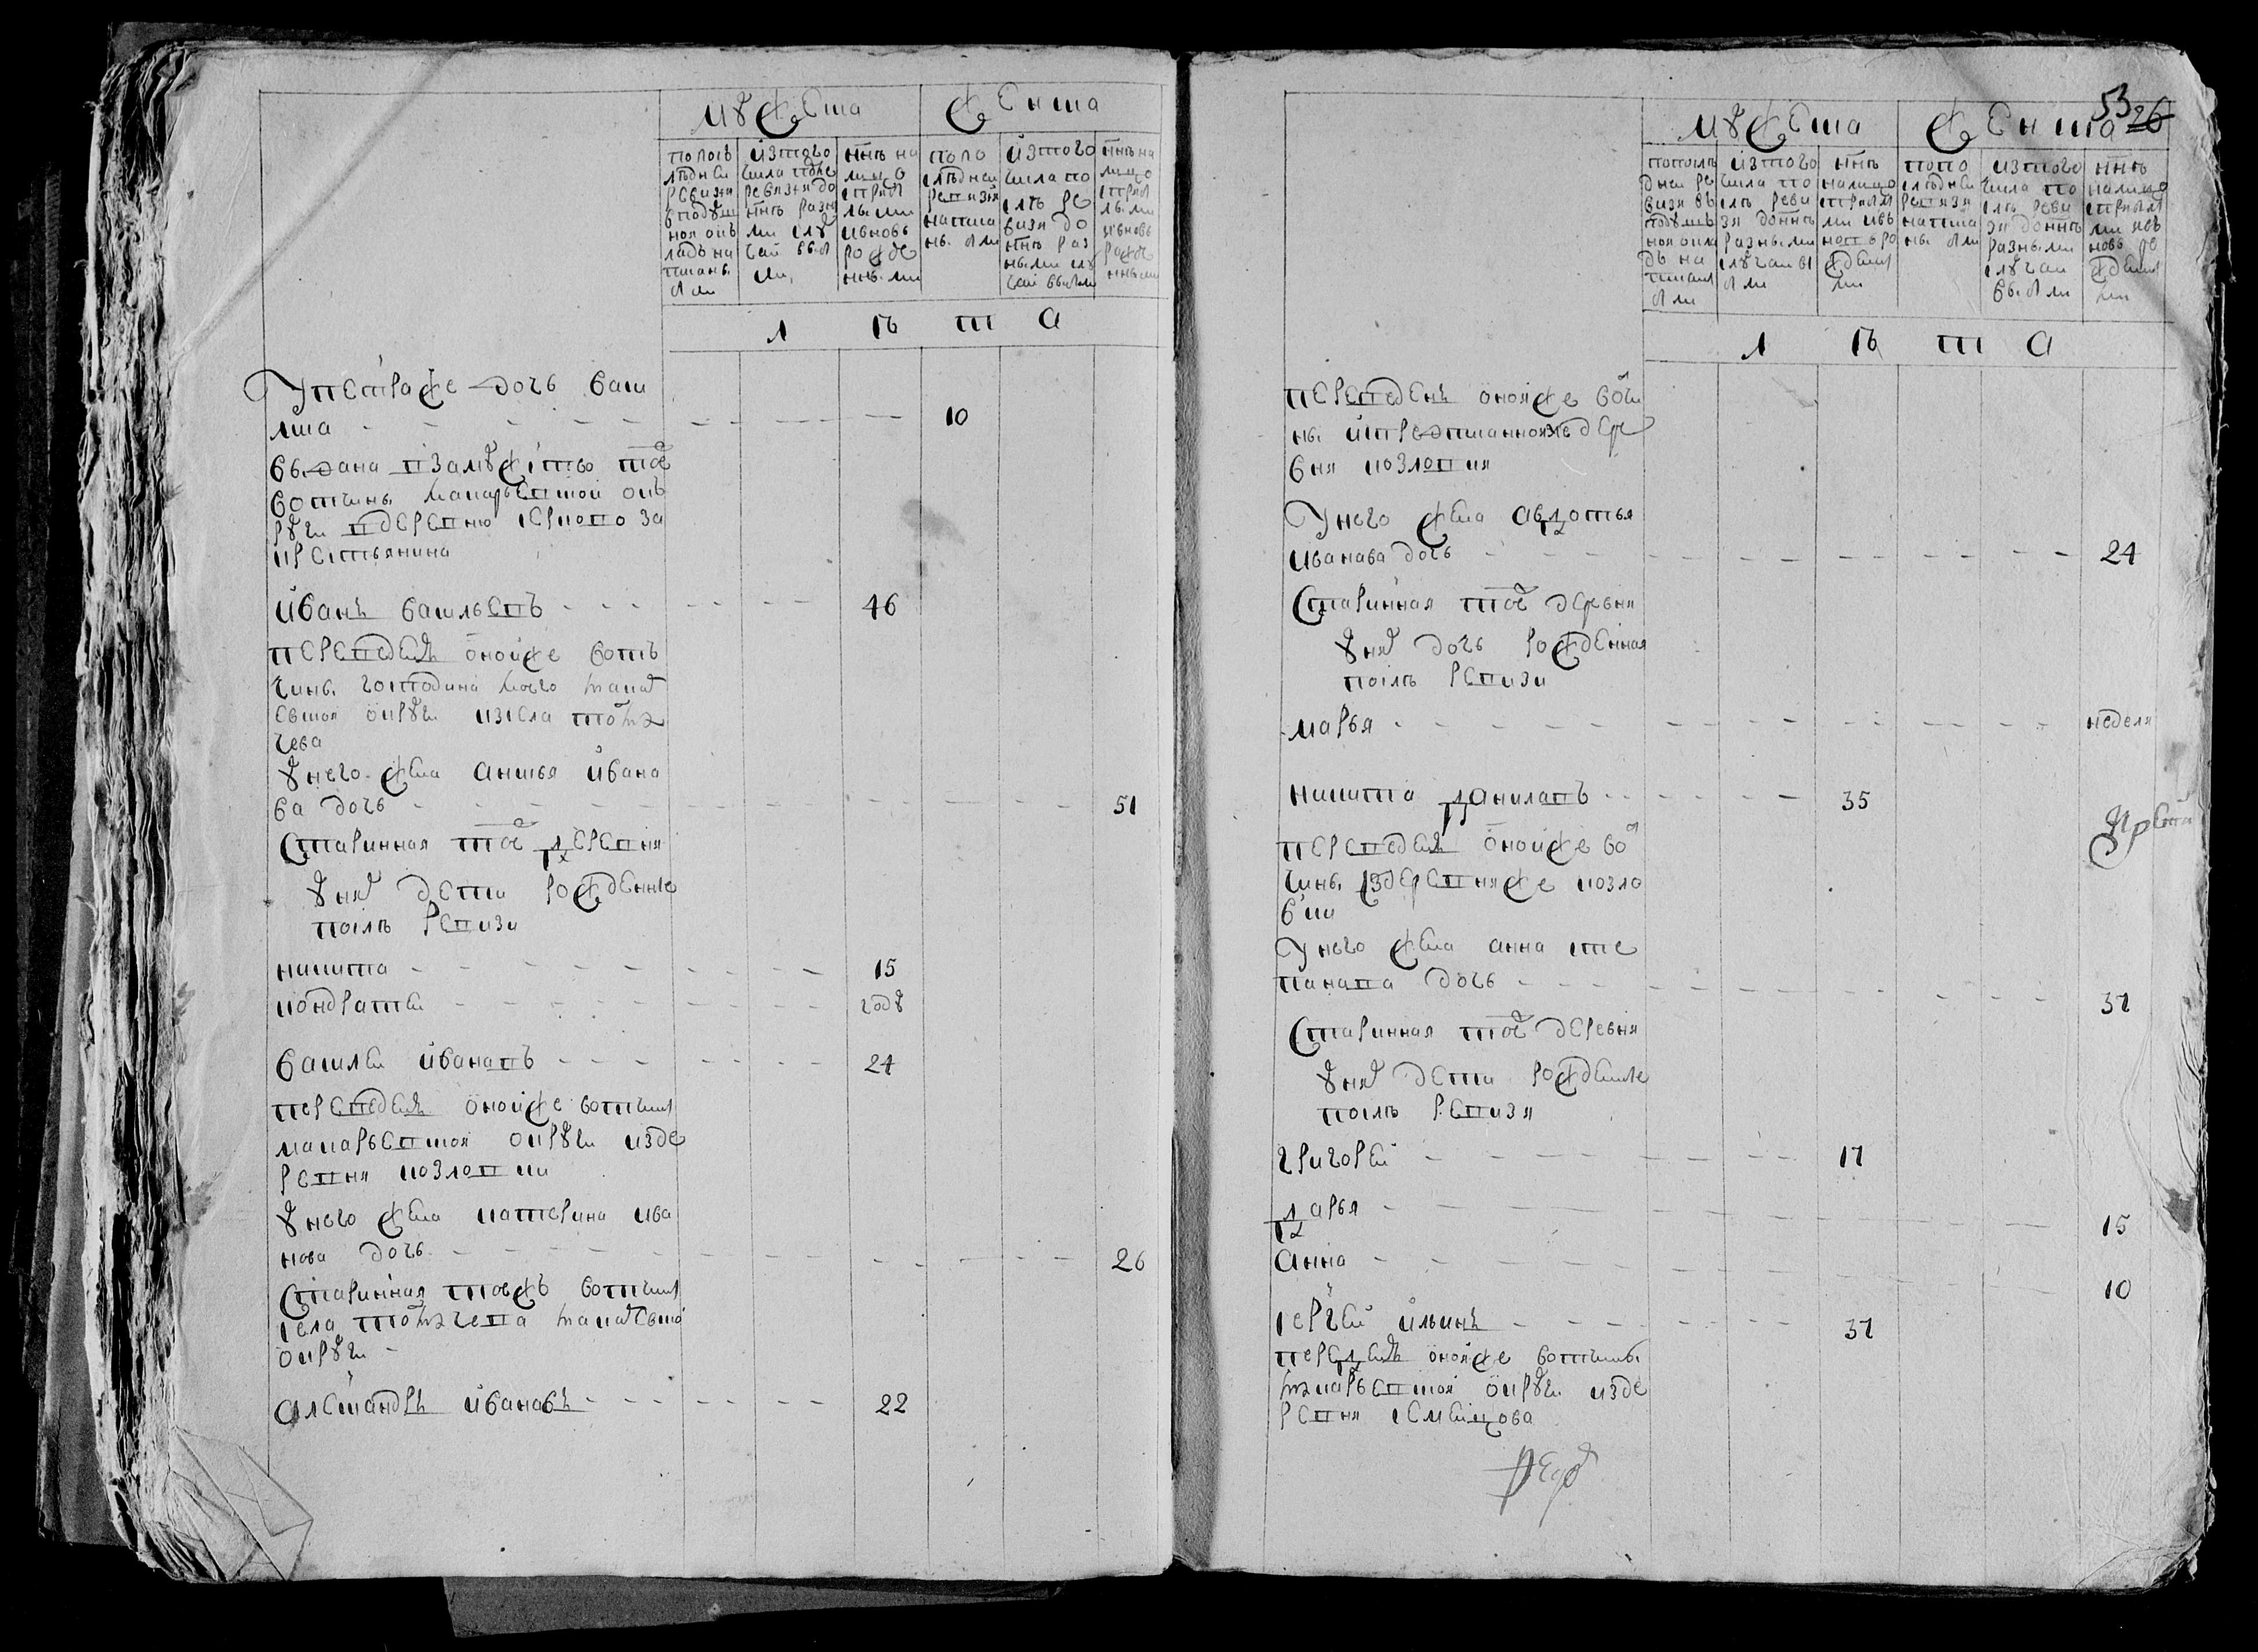 мужеска
женска
по последней ревизии в подушной окладъ написаны были
изтого числа после ревизии до ныне разными случаи выбыли
ныне налицо с прибылыми и вновь рожденными
по последней ревизии написаны были
изтого числа после ревизи до ныне разными случаи выбыли
ныне налицо с прибылыми и вновь рожденными
л ѣ т а
У петра же дочь васи
лиса 10
выдана взамужство тоеж
вотчины
округи в деревню за
крестьянина
иванъ васильевъ 46
переведенъ оной же вот
чины господина моего
евской округи изсела
чева
у него жена анисья ивано
ва дочь 51
старинная тоеж деревни
у них дети рожденные
после ревизи
никита 15
кондратей году
василей ивановъ 24
переведенъ оной же вотчины
макарьевской округи изде
ревни козловки
у него жена катерина ива
нова дочь 26
старинная тоежъ вотчины
села
округи
александръ ивановъ 22
53 26
мужеска
женска
по последней ревизи в подушной окладъ написаны были
изтого числа после ревизи до ныне разными случаи выбыли
ныне налицо с прибылыми и вновь рожденными
по последней ревизи написаны были
изтого числа после ревизи до ныне разными случаи выбыли
ныне налицо с прибылыми и вновь рожденными
л ѣ т а
переведенъ оной же вотчи
ны и преписанной же дере
вни козловки
У него жена авдотья
иванава дочь 24
старинная тоеж деревни
у них дочь рожденная
после ревизи
марья неделя
никита данилавъ 35
переведенъ оной же вот
чины из деревни же козло
вки
У него жена анна сте
панава дочь 37
старинная тоеж деревни
у них дети рожденные
после ревизи
григорей 17
дарья 15
анна 10
сергей ильинъ 37
переведенъ оной же вотчины
макарьевской округи изде
ревни